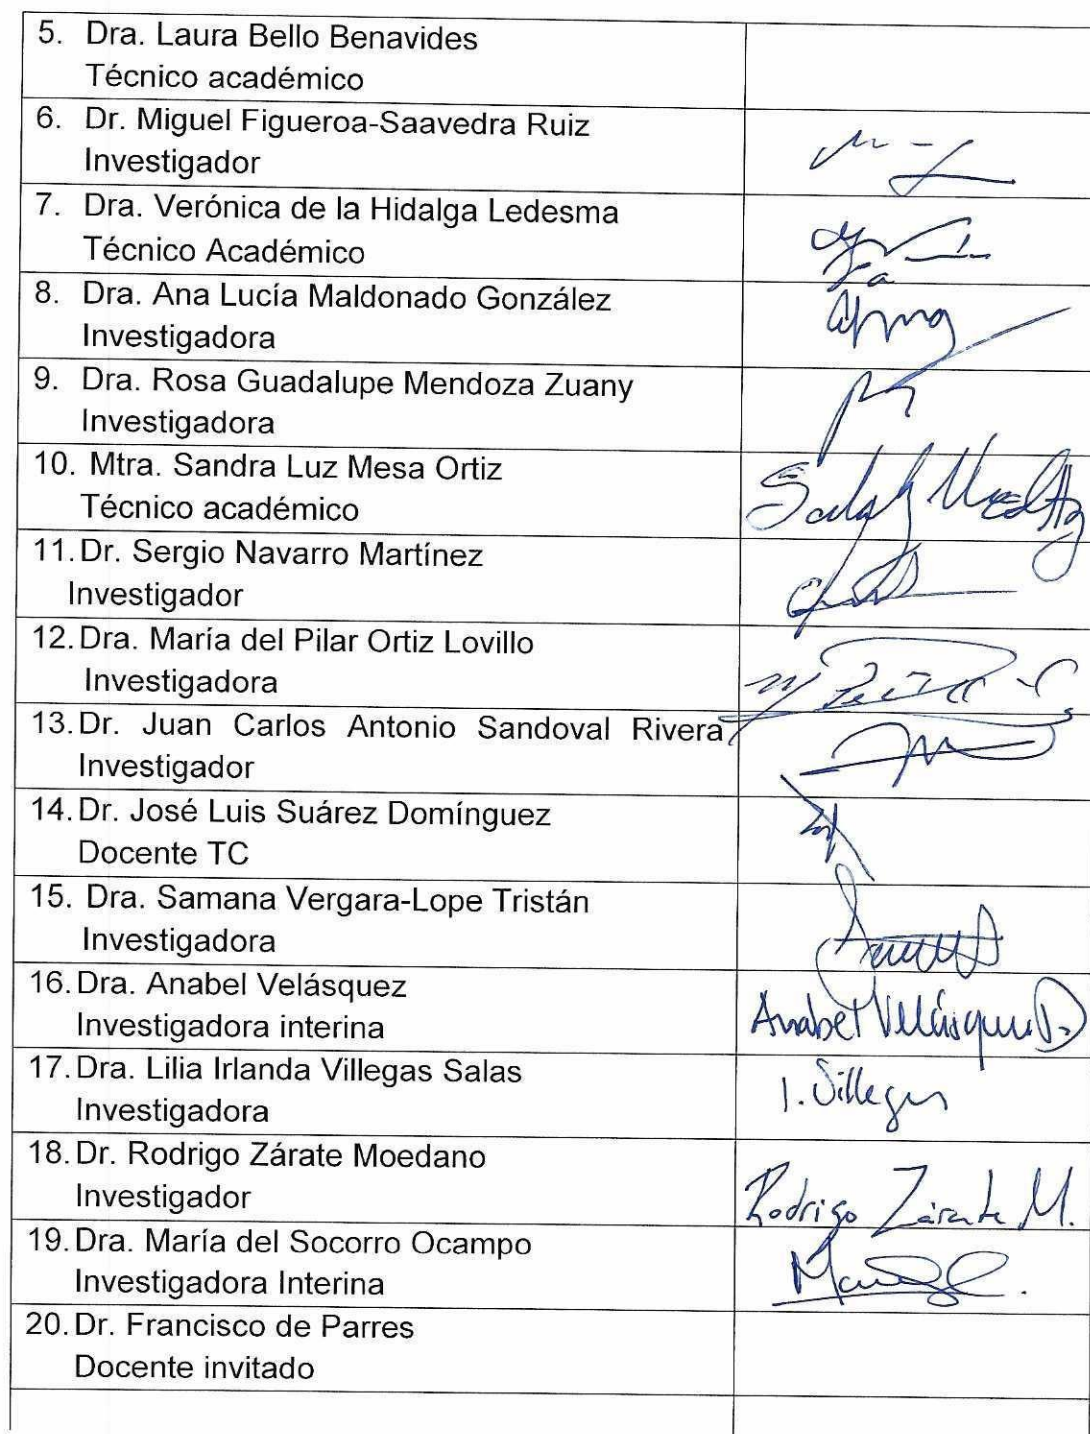 5. Dra. Laura Bello Benavides
Técnico académico
6. Dr. Miguel Figueroa-Saavedra Ruiz
Investigador
7. Dra. Verónica de la Hidalga Ledesma
Técnico Académico
8. Dra. Ana Lucía Maldonado González
Investigadora
9. Dra. Rosa Guadalupe Mendoza Zuany
Investigadora
10. Mtra. Sandra Luz Mesa Ortiz
Técnico académico
11. Dr. Sergio Navarro Martínez
Investigador
12. Dra. María del Pilar Ortiz Lovillo
Investigadora
13. Dr. Juan Carlos Antonio Sandoval Rivera
Investigador
14. Dr. José Luis Suárez Domínguez
Docente TC
15. Dra. Samana Vergara-Lope Tristán
Investigadora
16. Dra. Anabel Velásquez
Investigadora interina
Anabel Velásquez D.
17. Dra. Lilia Irlanda Villegas Salas
Investigadora
I. Villegas
18. Dr. Rodrigo Zárate Moedano
Investigador
Rodrigo Zárate M.
19. Dra. María del Socorro Ocampo
Investigadora Interina
20. Dr. Francisco de Parres
Docente invitado